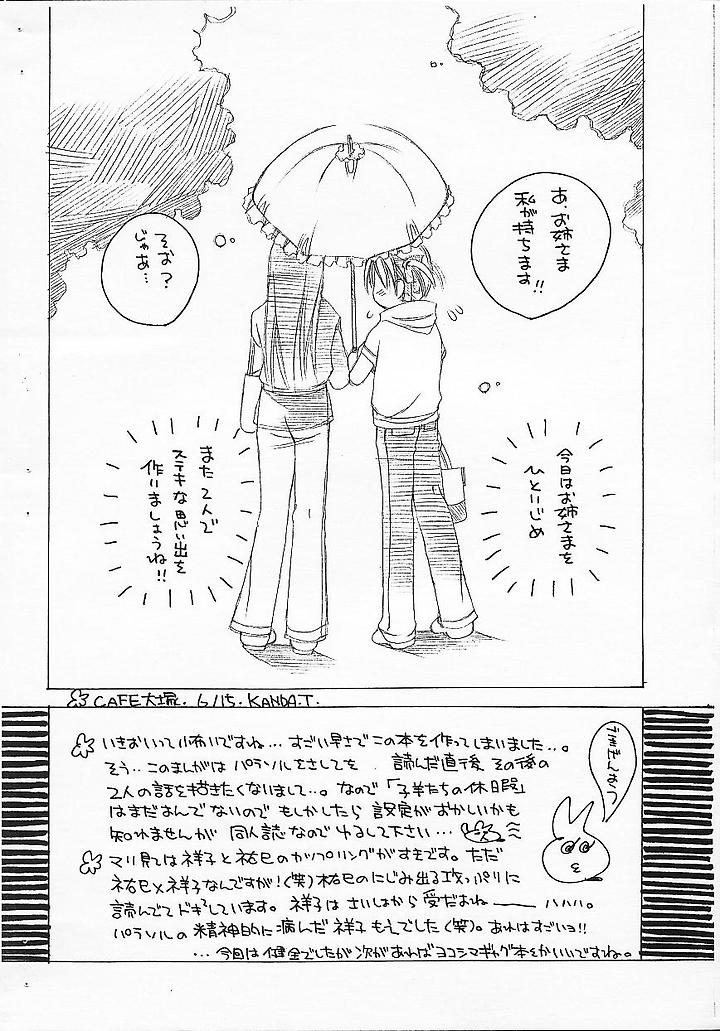 あ、お姉さま
私が持ちます!!
そお?
じゃあ…
今日はお姉さまを
ひといじめ
また2人で
ステキな思い出を
作いましょうね!!
CAFE大塚. 6/15. KANDA.T.
いきおいって怖いですね…すごい早さでこの本を作ってしまいました…。
そう…このまんがは パラソルをさしてを 読んだ直後 その後の
2人の話を描きたくないまして…。なので「子羊たちの休暇」
はまだよんでないので もしかしたら 設定がおかしいかも
知れませんが 同人誌なので ゆるして下さい…
マリ見ては祥子と祐巳のカップリングがすきです。ただ
祐巳×祥子なんですが!(笑)祐巳のにじみ出る攻っぷりに
読んでてドキドキしています。祥子は さいしょから 受だよね―― ハハハ。
パラソルの精神的に病んだ祥子もうでした(笑)。あれはすごいヨ!!
…今回は健全でしたが 次があればヨコシマギャグ本とかいいですね。